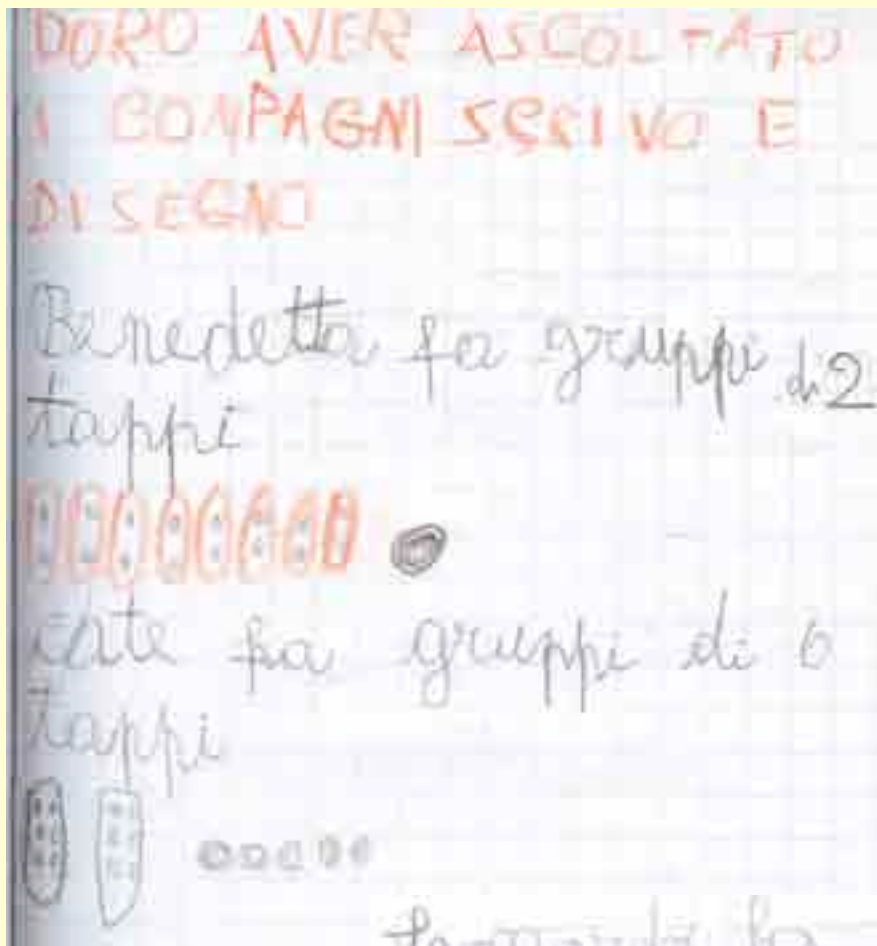 DOPO AVER ASCOLTATO
I COMPAGNI SCRIVO E
DISEGNO
Benedetta fa gruppi di 2
tappi
cate fa gruppi di 6
tappi
fa